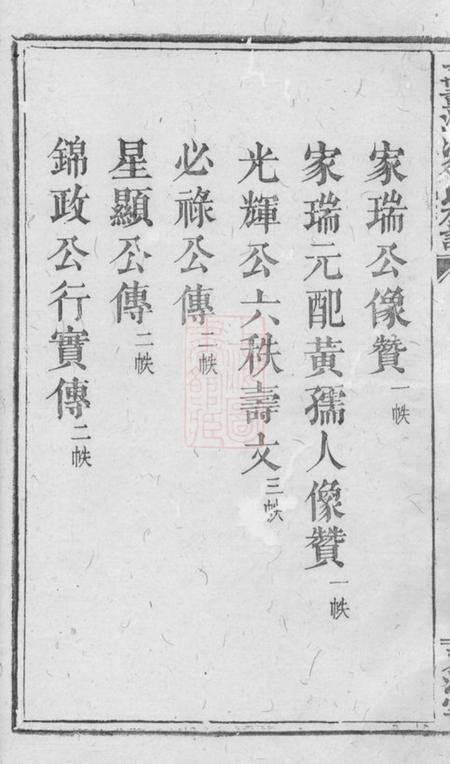 家瑞公像贊一帙
家瑞元配黃孺人像贊一帙
光輝公六秩壽文三帙
必祿公傳二帙
星顯公傳二帙
錦政公行實傳二帙